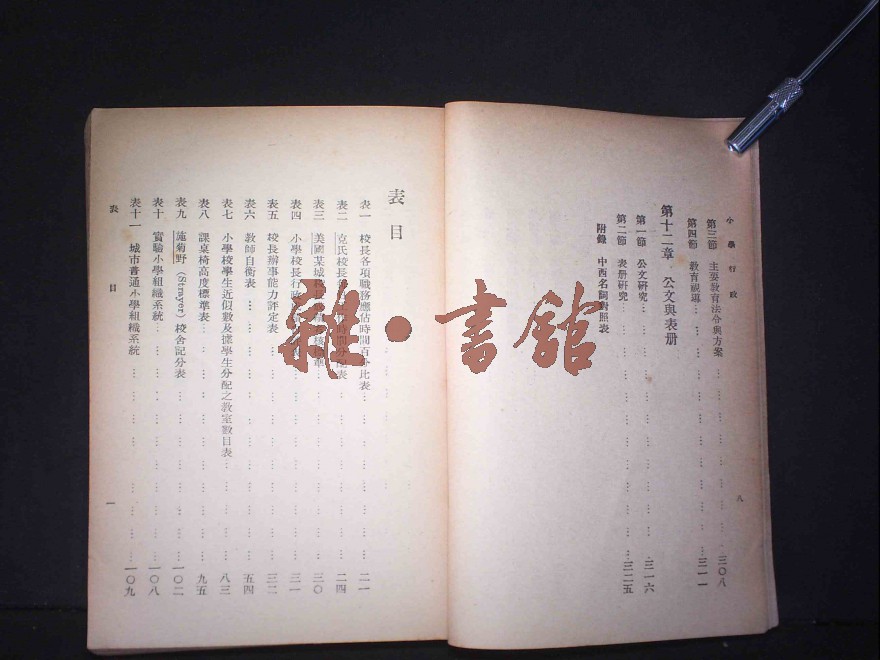 小學行政
第三節 主要教育法令與方案……三〇八
第四節 教育視導……三一一
第十二章 公文與表册
第一節 公文研究……三一六
第二節 表册研究……三二五
附錄 中西名詞對照表
八
表目
表一 校長各項職務應估時間百分比表……二一
表二 克氏校長 時間分配表……二四
表三 美國某城校長……三〇
表四 小學校長行政 表……三一
表五 校長辦事能力評定表……三二
表六 教師自衡表……五四
表七 小學校學生近似數及據學生分配之教室數目表……八三
表八 課桌椅高度標準表……九五
表九 施菊野（Strayer）校舍記分表……一〇二
表十 實驗小學組織系統……一〇八
表十一 城市普通小學組織系統……一〇九
表目
一
雜·書館